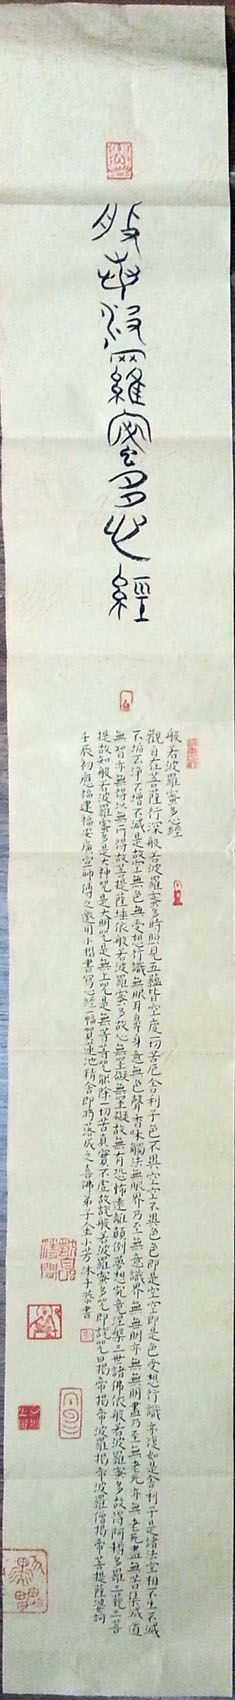 般若波羅蜜多心經
般若波羅蜜多心經
觀自在菩薩行深般若波羅蜜多時照見五蘊皆空度一切苦厄舍利子色不異空空不異色色即是空空即是色受想行識亦復如是舍利子是諸法空相不生不滅
不垢不淨不增不減是故空中無色無受想行識無眼耳鼻舌身意無色聲香味觸法無眼界乃至無意識界無無明亦無無明盡乃至無老死亦無老死盡無苦集滅道
無智亦無得以無所得故菩提薩埵依般若波羅蜜多故心無罣礙無罣礙故無有恐怖遠離顛倒夢想究竟涅槃三世諸佛依般若波羅蜜多故得阿耨多羅三藐三菩
提故知般若波羅蜜多是大神咒是大明咒是無上咒是無等等咒能除一切苦真實不虛故說般若波羅蜜多咒即說咒曰揭帝揭帝波羅揭帝波羅僧揭帝菩提薩婆訶
壬辰初應福建福安廣宣師傅之邀用小楷書寫心經一幅賀蓮池精舍即將落成之喜佛弟子全小芳沐手恭書